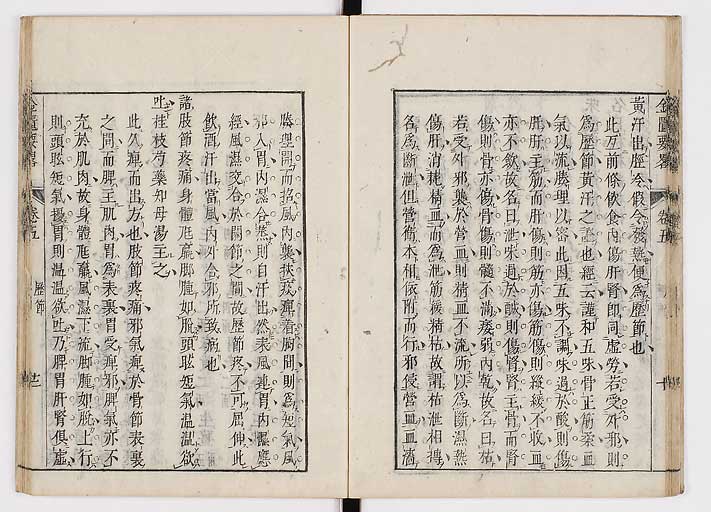 黃汗出脛冷假令發熱便爲歷節也
此互前條飲食內傷肝腎卽同虛勞若受外邪則
爲歷節黃汗之證也經云謹和五味骨正筋柔血
氣以流腠理以密此因五味不調味過於酸則傷
肝肝主筋而肝傷則筋亦傷筋傷則緩緩不收血
亦不歛故名曰泄味過於鹹則傷腎腎主骨而腎
傷則骨亦傷骨傷則髓不滿痿弱內乾故名曰枯
若受外邪襲於營血則精血不流所以爲斷濕熱
傷肝消耗精血而爲泄筋緩精枯故謂枯泄相搏
名爲斷泄但營衛本相依附而行邪侵營血血滴
金匱要畧 卷五
腠理開而招風內襲挾痰痹着胸間則爲短氣風
邪入胃內濕合蒸則自汗出然表風連胃內濕應
經風濕交合於關節之間故歷節疼不可屈伸此
飲酒汗出當風內外合邪所致病也
諸肢節疼痛身體尫羸脚腫如脫頭眩短氣溫溫欲
吐桂枝芍藥知母湯主之
此久痺而出方也肢節疼痛邪氣痺於骨節表裏
之間而脾主肌肉胃爲表裏胃受痺邪脾氣亦不
充於肌肉故身體尫羸風濕下流脚腫如脫上行
則頭眩短氣擾胃則溫溫欲吐乃脾胃肝腎俱虛
卷五 歷節